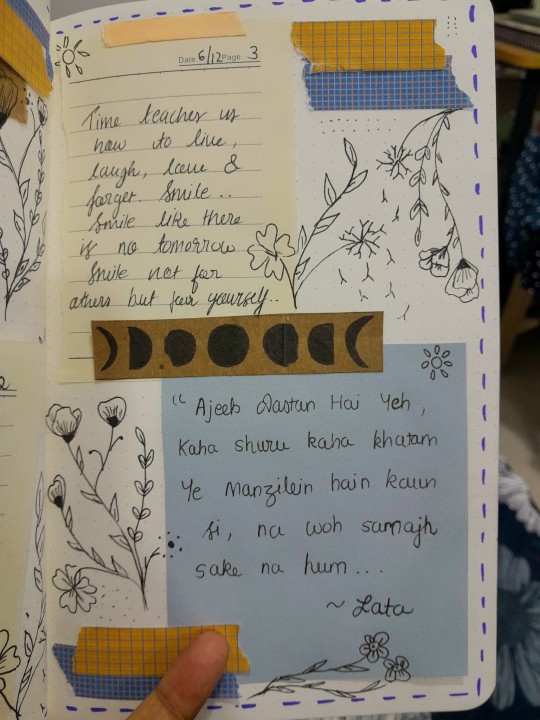 Date 6/12 Page 3
Time teaches us
how to live,
laugh, love &
forget. Smile..
Smile like there
is no tomorrow
Smile not for
others but for yourself..
“ Ajeeb Dastan Hai Yeh,
Kaha shuru kaha khatam
Ye Manzilein hain kaun
si, na woh samajh
sake na hum...
~ Lata